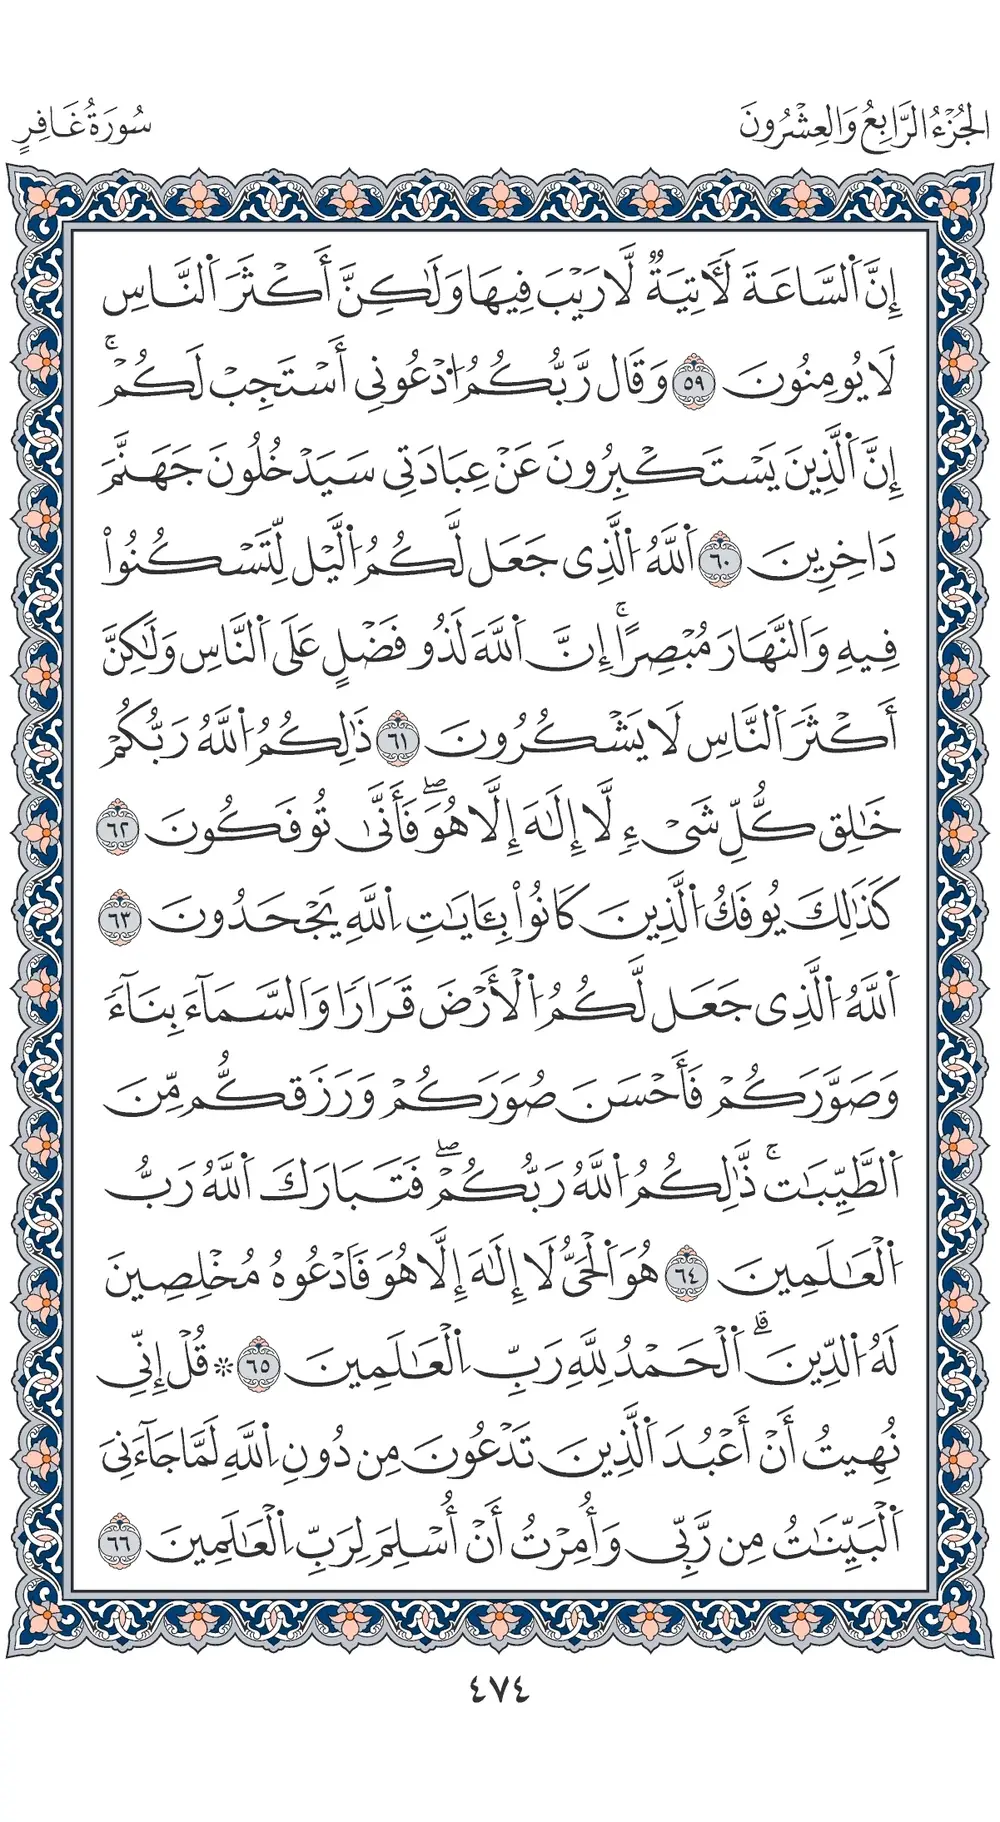 الجُزْءُ الرَّابِعُ وَالعِشْرُونَ
سُورَةُ غَافِرٍ
إِنَّ اَلسَّاعَةَ لَأٓتِيَةٌ لَّا رَيْبَ فِيهَا وَلَٰكِنَّ أَكْثَرَ اَلنَّاسِ
لَا يُومِنُونَ ٥٩ وَقَال رَّبُّكُمُ اُدْعُونِي أَسْتَجِبْ لَكُمْۚ
إِنَّ اَلَّذِينَ يَسْتَكْبِرُونَ عَنْ عِبَادَتِي سَيَدْخُلُونَ جَهَنَّمَ
دَاخِرِينَ ٦٠ اَللَّهُ اُلَّذِى جَعَل لَّكُمُ اُلَّيْل لِّتَسْكُنُواْ
فِيهِ وَاَلنَّهَارَ مُبْصِرًاۚ إِنَّ اَللَّهَ لَذُو فَضْلٍ عَلَى اَلنَّاسِ وَلَٰكِنَّ
أَكْثَرَ اَلنَّاسِ لَا يَشْكُرُونَ ٦١ ذَٰلِكُمُ اُللَّهُ رَبُّكُمْ
خَٰلِق كُّلِّ شَىْءٍ لَّا إِلَٰهَ إِلَّا هُوَۖ فَأَنَّىٰ تُوفَكُونَ ٦٢
كَذَٰلِكَ يُوفَكُ اُلَّذِينَ كَانُواْ بِـَٔايَٰتِ اِللَّهِ يَجْحَدُونَ ٦٣
اَللَّهُ اُلَّذِى جَعَل لَّكُمُ اُلْأَرْضَ قَرَارًا وَاَلسَّمَآءَ بِنَآءً
وَصَوَّرَكُمْ فَأَحْسَنَ صُوَرَكُمْ وَرَزَقكُّم مِّنَ
اَلطَّيِّبَٰتۚ ذَّٰلِكُمُ اُللَّهُ رَبُّكُمْۖ فَتَبَارَكَ اَللَّهُ رَبُّ
اُلْعَٰلَمِينَ ٦٤ هُوَ اَلْحَىُّ لَا إِلَٰهَ إِلَّا هُوَ فَادْعُوهُ مُخْلِصِينَ
لَهُ اُلدِّينَۗ اَلْحَمْدُ لِلَّهِ رَبِّ اِلْعَٰلَمِينَ ٦٥ ۞ قُلْ إِنِّي
نُهِيتُ أَنْ أَعْبُدَ اَلَّذِينَ تَدْعُونَ مِن دُونِ اِللَّهِ لَمَّا جَآءَنِىَ
اَلْبَيِّنَٰتُ مِن رَّبِّي وَأُمِرْتُ أَنْ أُسْلِمَ لِرَبِّ اِلْعَٰلَمِينَ ٦٦
٤٧٤